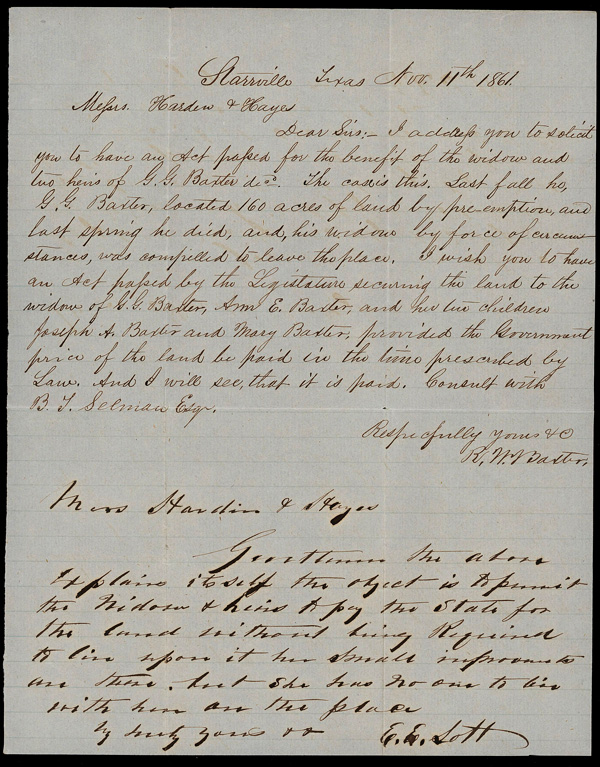 Starrville Texas Nov. 11th 1861.
Messrs. Harden & Hayes
Dear Sirs;- I address you to solicit
you to have an Act passed for the benefit of the widow and
two heirs of G. G. Baxter decd. The case is this. Last fall he,
G. G. Baxter, located 160 acres of land by pre-emption, and
last spring he died, and, his widow by force of circum-
stances, was compelled to leave the place. I wish you to have
an Act passed by the Legislature securing the land to the
widow of G. G. Baxter, Ann E. Baxter, and her two children
Joseph A. Baxter and Mary Baxter, provided the Government
price of the land be paid in the time prescribed by
Law. And I will see, that it is paid. Consult with
B. T. Selman Esqr.
Respectfully yours &C
R. W. Baxter.
Mess Hardin & Hayes
Gentlemen the above
Explains itself the object is to permit
the Widow & heirs to pay the State for
the land without being Required
to live upon it her small improvements
are there. but She has no one to live
with her on the place
yours &c E. E. Lott